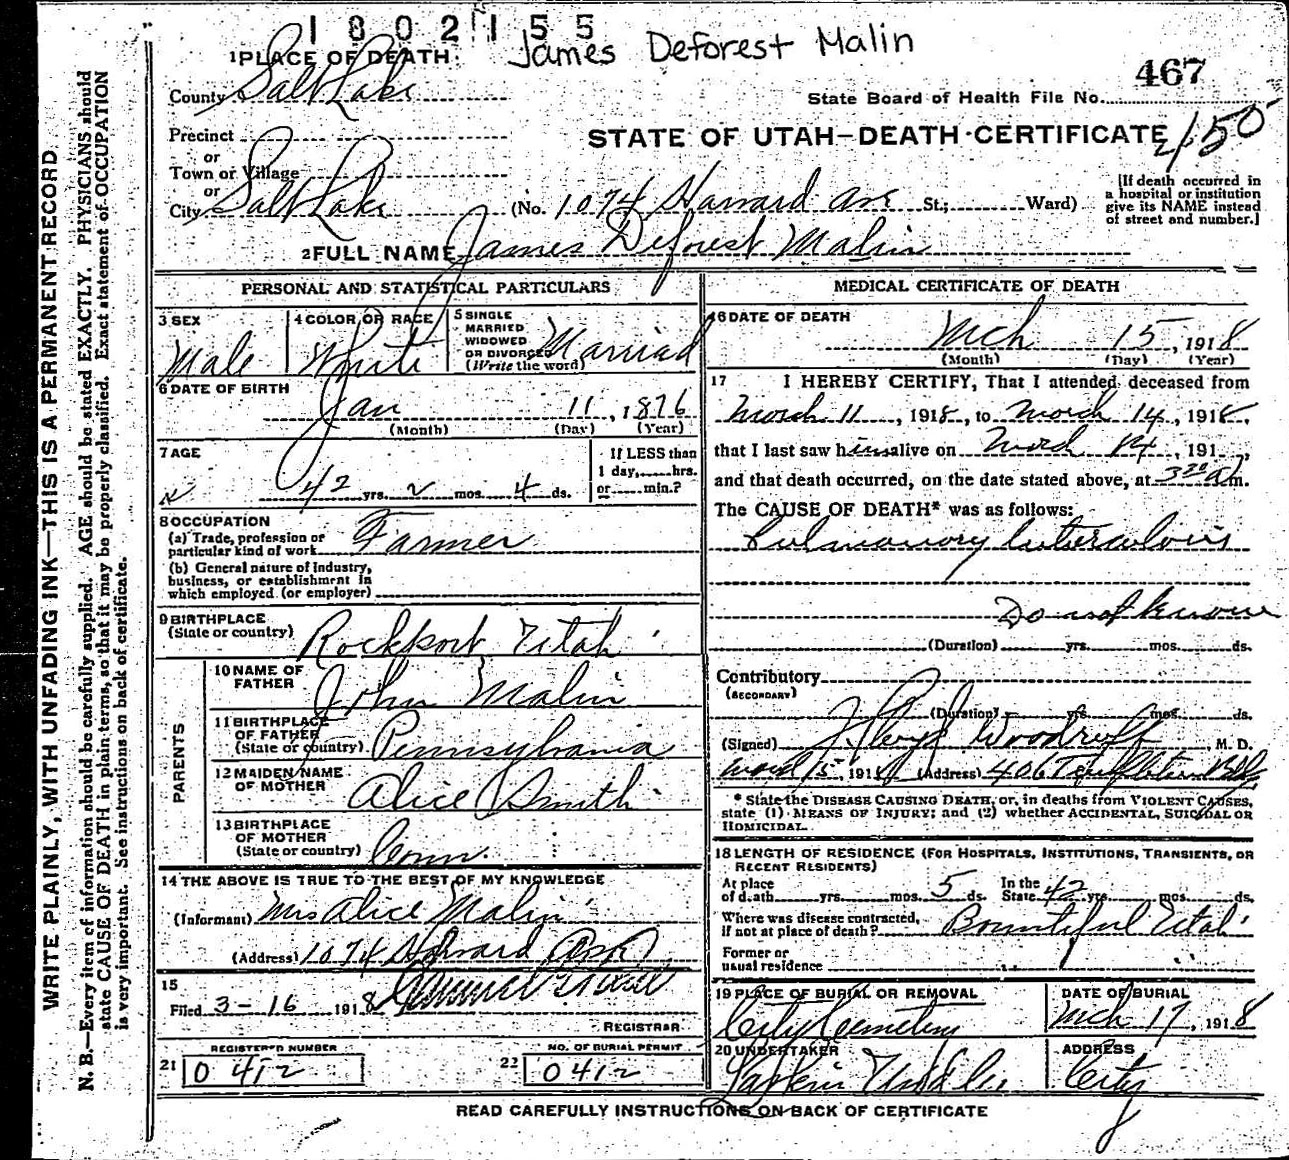 1802155
James Deforest Malin
467
State Board of Health File No.
STATE OF UTAH—DEATH-CERTIFICATE
2/150
1 PLACE OF DEATH
County Salt Lake
Precinct
or
Town or Village
or
City Salt Lake (No. 1074 Harvard Ave St; Ward)
[If death occurred in a hospital or institution give its NAME instead of street and number.]
2 FULL NAME James Deforest Malin
PERSONAL AND STATISTICAL PARTICULARS
3 SEX
Male
4 COLOR OR RACE
White
5 SINGLE
MARRIED
WIDOWED
OR DIVORCED
(Write the word)
Married
6 DATE OF BIRTH
Jan 11, 1876
(Month) (Day) (Year)
7 AGE
42 yrs. 2 mos. 4 ds.
If LESS than
1 day, hrs.
or min.?
8 OCCUPATION
(a) Trade, profession or
particular kind of work Farmer
(b) General nature of Industry,
business, or establishment in
which employed (or employer)
9 BIRTHPLACE
(State or country) Rockport Utah
PARENTS
10 NAME OF
FATHER John Malin
11 BIRTHPLACE
OF FATHER
(State or country) Pennsylvania
12 MAIDEN NAME
OF MOTHER Alice Smith
13 BIRTHPLACE
OF MOTHER
(State or country) Conn.
14 THE ABOVE IS TRUE TO THE BEST OF MY KNOWLEDGE
(Informant) Mrs Alice Malin
(Address) 1074 Harvard Ave
15
Filed 3-16 1918
REGISTRAR
REGISTERED NUMBER
21 0412
NO. OF BURIAL PERMIT
22 0412
MEDICAL CERTIFICATE OF DEATH
16 DATE OF DEATH
Mch 15, 1918
(Month) (Day) (Year)
17 I HEREBY CERTIFY, That I attended deceased from
March 11, 1918, to March 14, 1918,
that I last saw him alive on March 14, 191 ,
and that death occurred, on the date stated above, at 3 30 a m.
The CAUSE OF DEATH* was as follows:
Pulmonary tuberculosis
Do not know
(Duration) yrs. mos. ds.
Contributory
(SECONDARY)
(Duration) yrs. mos. ds.
(Signed) Woodruff, M. D.
March 15 1918 (Address) 406 Templeton Bldg
* State the DISEASE CAUSING DEATH, or, in deaths from VIOLENT CAUSES,
state (1) MEANS OF INJURY; and (2) whether ACCIDENTAL, SUICIDAL OR
HOMICIDAL.
18 LENGTH OF RESIDENCE (FOR HOSPITALS, INSTITUTIONS, TRANSIENTS, OR
RECENT RESIDENTS)
At place
of death yrs. mos. 5 ds. In the State 42 yrs. mos. ds.
Where was disease contracted,
if not at place of death? Bountiful Utah
Former or
usual residence
19 PLACE OF BURIAL OR REMOVAL
City Cemetery
DATE OF BURIAL
Mch 17, 1918
20 UNDERTAKER
Larkin Und Co
ADDRESS
City
READ CAREFULLY INSTRUCTIONS ON BACK OF CERTIFICATE
WRITE PLAINLY, WITH UNFADING INK—THIS IS A PERMANENT RECORD
N. B.—Every item of information should be carefully supplied. AGE should be stated EXACTLY. PHYSICIANS should
state CAUSE OF DEATH in plain terms, so that it may be properly classified. Exact statement of OCCUPATION
is very important. See instructions on back of certificate.